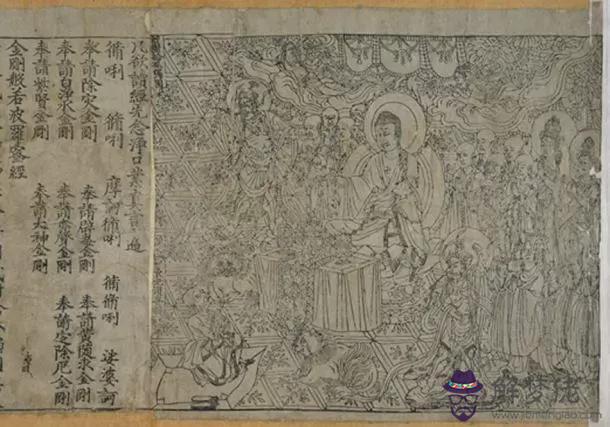 凡欲讀經先念淨口業真言一遍
脩唎 脩唎 摩訶脩唎 脩脩唎 娑婆訶
奉請除災金剛 奉請辟毒金剛 奉請黃隨求金剛
奉請白淨水金剛 奉請赤聲金剛 奉請定除厄金剛
奉請紫賢金剛 奉請大神金剛
金剛般若波羅蜜經
解梦佬
www.jiemenglao.com